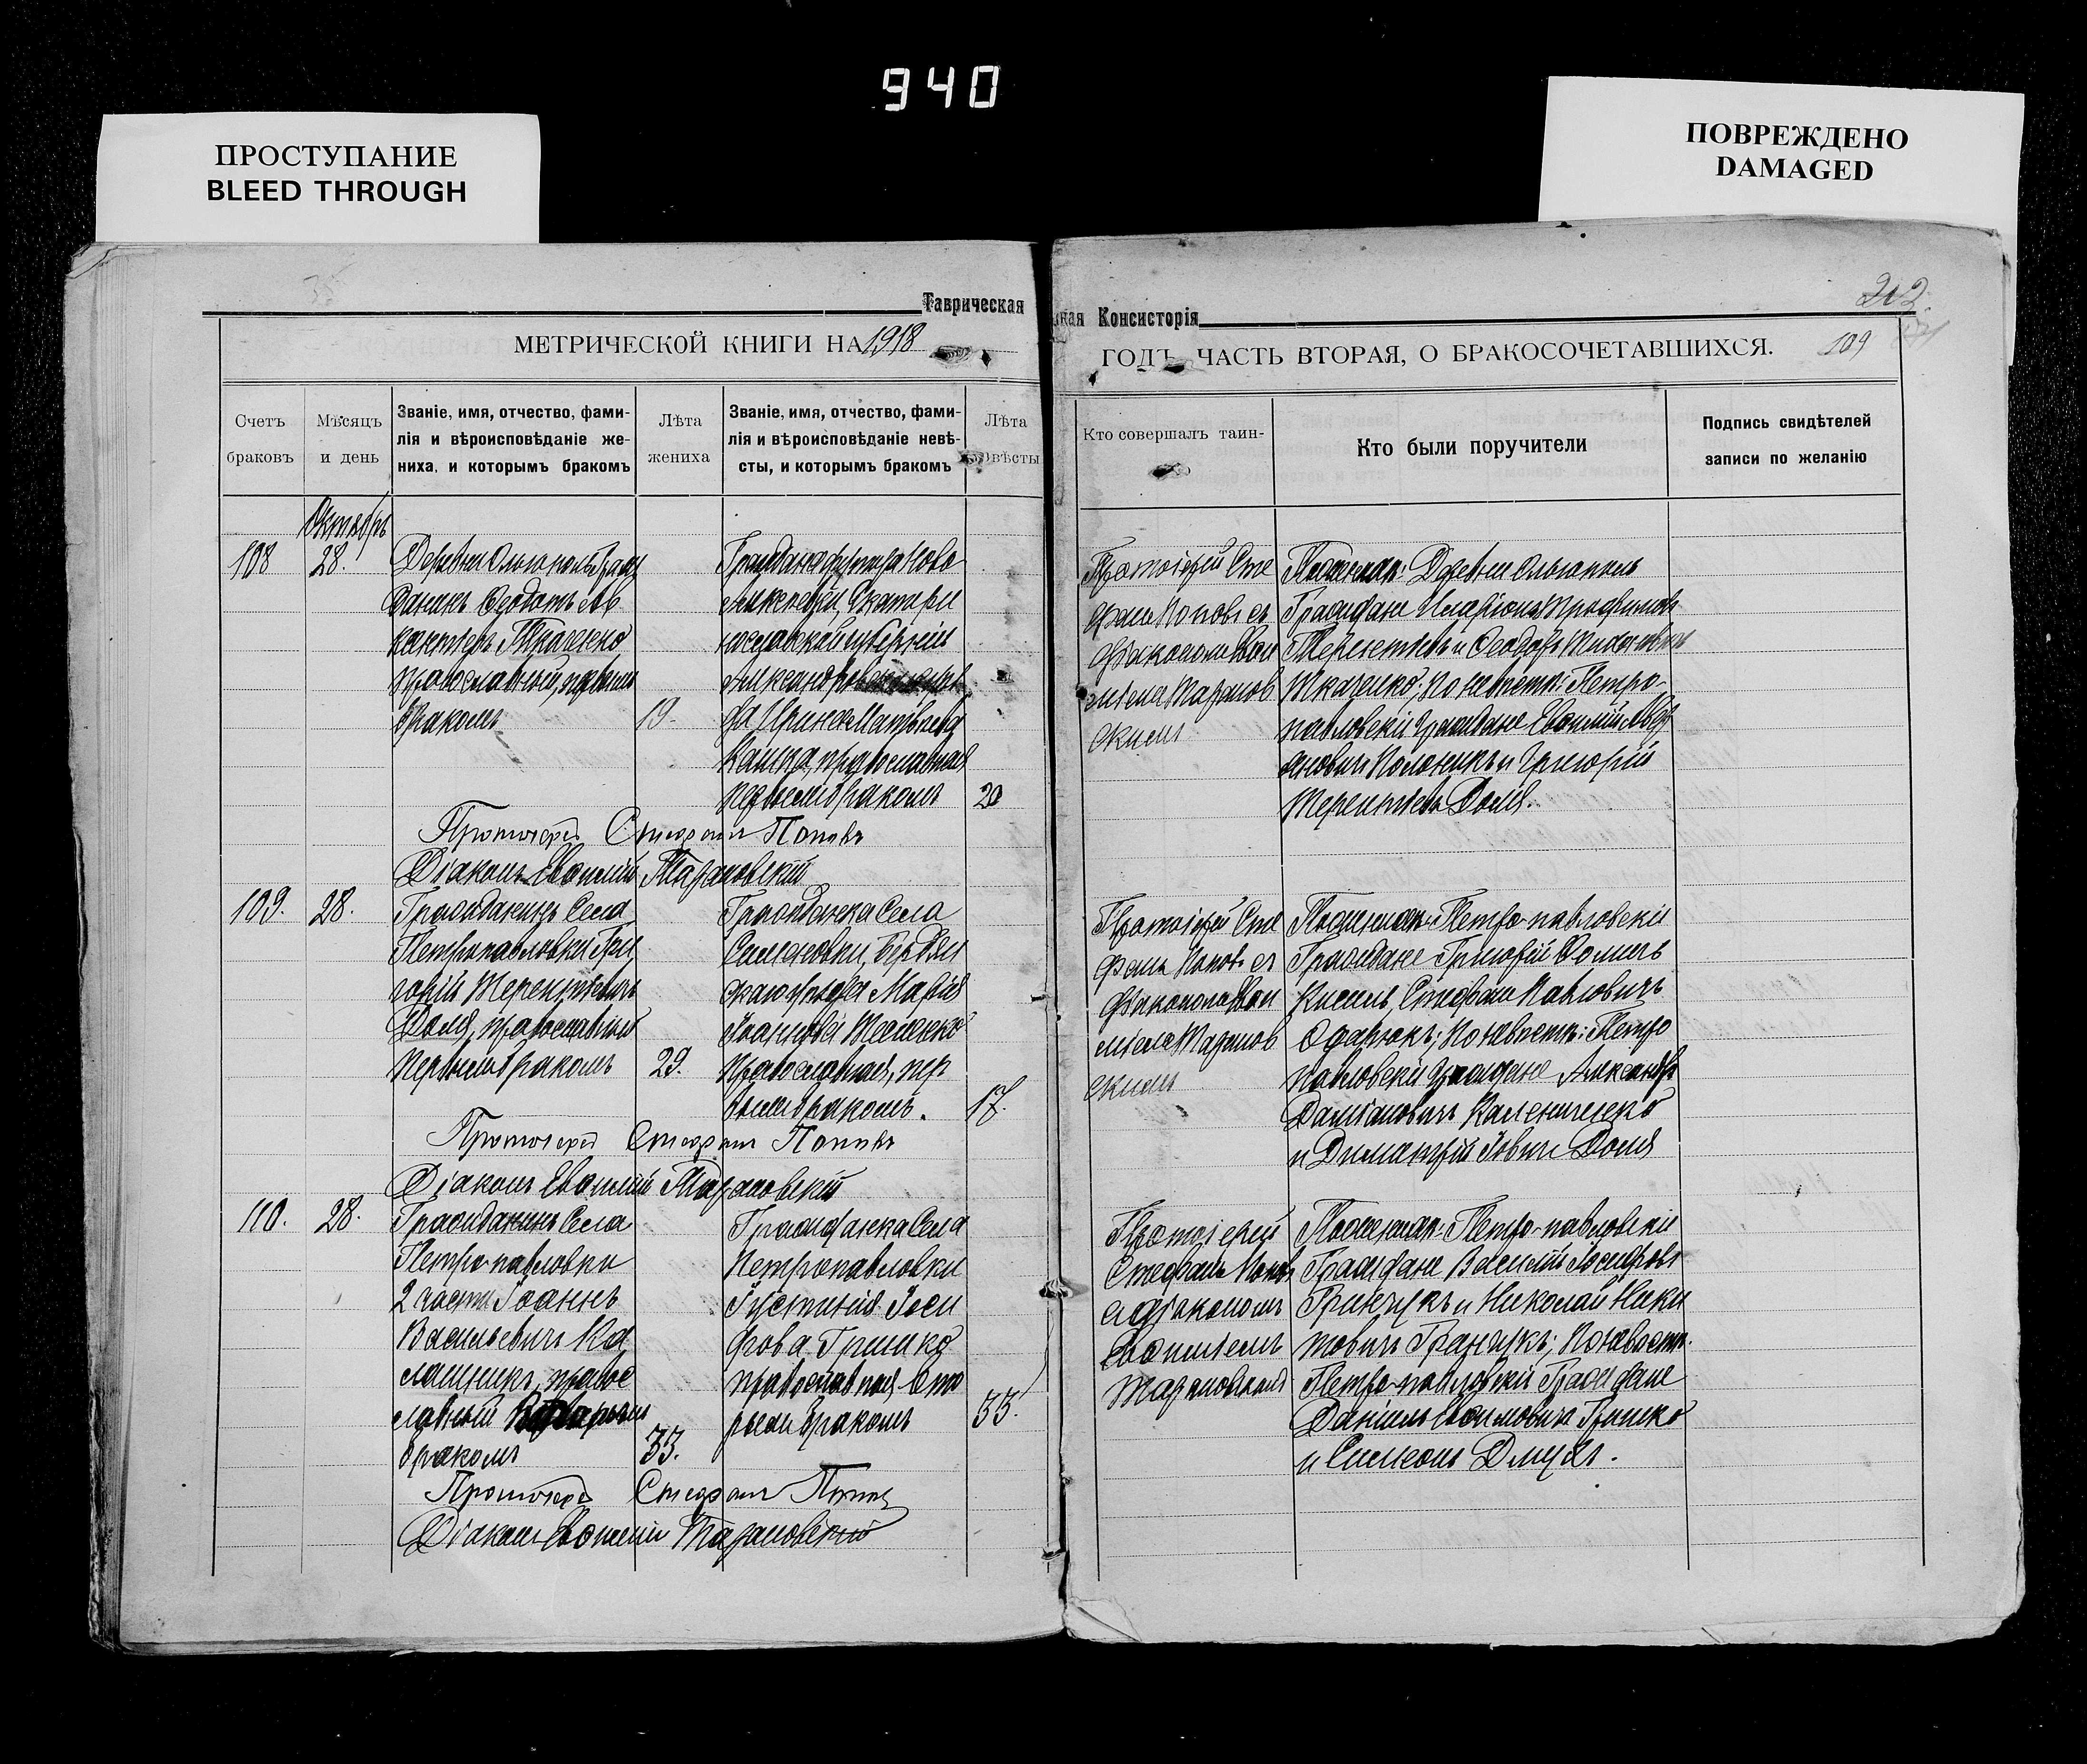 940
ПРОСТУПАНИЕ
BLEED THROUGH
ПОВРЕЖДЕНО
DAMAGED
Таврическая
ная Консисторія
212
МЕТРИЧЕСКОЙ КНИГИ НА 1918
ГОДЪ ЧАСТЬ ВТОРАЯ, О БРАКОСОЧЕТАВШИХСЯ.
109
Счетъ
браковъ
Мѣсяцъ
и день
Званіе, имя, отчество, фами-
лія и вѣроисповѣданіе же-
ниха, и которымъ бракомъ
Лѣта
жениха
Званіе, имя, отчество, фами-
лія и вѣроисповѣданіе невѣ-
сты, и которымъ бракомъ
Лѣта
вѣсты
Кто совершалъ таин-
Кто были поручители
Подпись свидѣтелей
записи по желанію
Октябрь
108
28.
Деревни Ольгополь Граж
данинъ Ѳеодотъ
Ткаченко
православный, первымъ
бракомъ
19.
Гражданка хутора Ново
Алексѣевки, Екатери
нославской губерніи
Александровск
да Ирина Матвѣева
православная
первымъ бракомъ
20
Протоіерей Сте
фанъ Поповъ съ
діакономъ Евѳи
міемъ Таранов
скимъ
По женихѣ: Деревни Ольгополь
Граждане Иларіонъ Трофимовъ
Терентьевъ и Ѳеодоръ
Ткаченко; по невѣстѣ: Петро-
павловскіе граждане Евѳимій
и Григорій
Терентьевъ Доля.
Протоіерей Стефанъ Поповъ
Діаконъ Евѳимій Тарановскій
109.
28.
Гражданинъ Села
Петропавловки Гри
горій Терентьевичъ
Доля, православный
первымъ бракомъ
29.
Гражданка Села
Семеновки, Бердян
скаго уѣзда Марія
Іоаннова
православная, пер
вымъ бракомъ.
17.
Протоіерей Сте
фанъ Поповъ съ
діакономъ Евѳи
міемъ Таранов
скимъ
По женихѣ: Петро-павловскіе
Граждане Григорій Ѳомичъ
Кисель, Стефанъ Павловичъ
Одарюкъ; по невѣстѣ: Петро
павловскіе граждане Александръ
Даміановичъ Калениченко
и Димитрій Іовичъ Доля
Протоіерей Стефанъ Поповъ
Діаконъ Евѳимій Тарановскій
110.
28.
Гражданинъ Села
Петро-павловки
2 части Іоаннъ
Васильевичъ Ка
лашникъ, правос
лавный
бракомъ
33.
Гражданка Села
Петропавловки
Іустинія Іоси
фова Гришко
православная вто
рымъ бракомъ
33.
Протоіерей
Стефанъ Поповъ
съ діакономъ
Евѳиміемъ
Тарановскимъ
По женихѣ: Петро-павловскіе
Граждане Василій Іосифовъ
Гринчукъ и Николай Ники
товичъ; по невѣстѣ:
Петро-павловскіе Граждане
Даніилъ Евѳимовичъ Гришко
и Симеонъ
Протоіерей Стефанъ Поповъ
Діаконъ Евѳимій Тарановскій